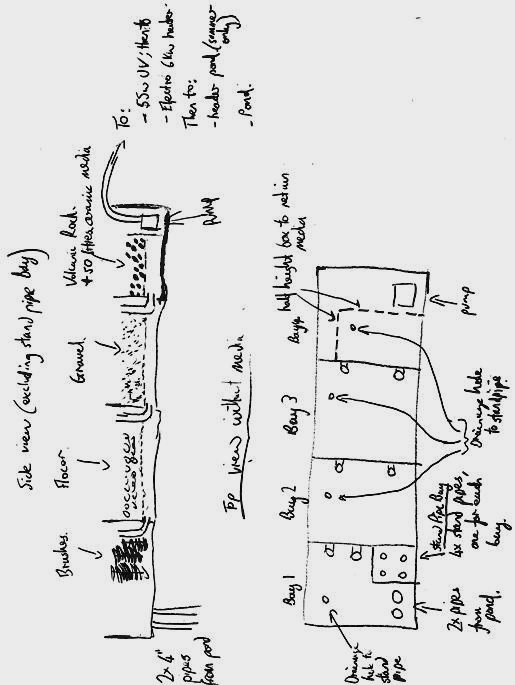 Side view (excluding stand pipe bay)
Brushes.
Flocor.
Gravel.
Volcanic Rock
+ 50 litres ceramic media
To:
- 55w UV; then to
- Electro 6Kw heater
Then to:
- header pond (summer
only)
- Pond.
2x 4"
pipes
from pond
pump
Top view without media
Bay 1
Bay 2
Bay 3
Bay 4
half height box to retain
media
Drainage
hole to
stand
pipe
2x pipes
from pond.
stand Pipe Bay
4x stand pipes,
one for each
bay.
Drainage hole
to standpipe
pump